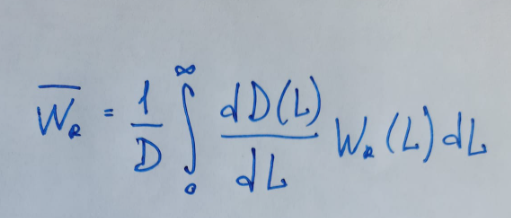 $\overline{W_R} = \frac{1}{D} \int_0^\infty \frac{dD(L)}{dL} W_R(L) dL$